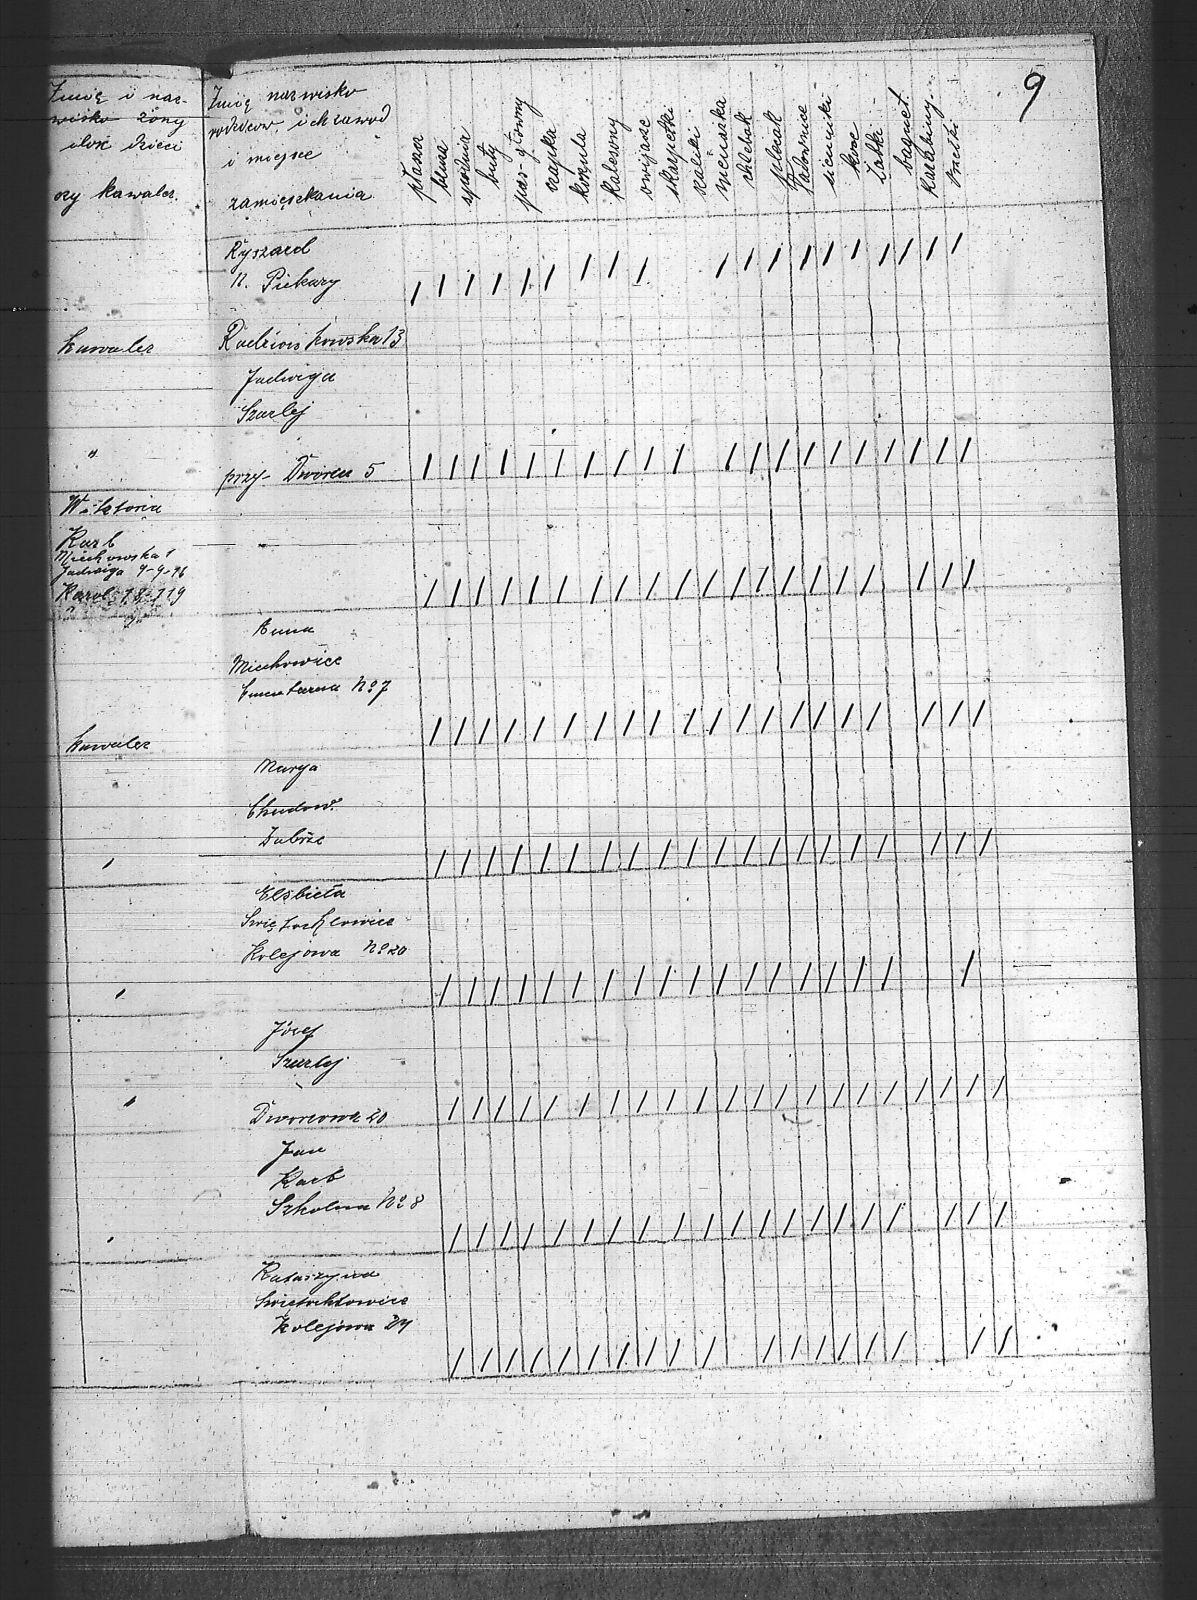 9
Imię i naz-
wisko żony
ilość dzieci
czy kawaler.
Imię nazwisko
rodziców, ich zawód
i miejsce
zamieszkania
płaszcz
bluza
spodnie
buty
pas-główny
czapka
koszula
kalesony
owijacze
skarpetki
szaliki
menaszka
chlebak
plecak
Ładownice
sienniki
koce
bagnet
Karabiny
Ryszard
N. Piekary
kawaler
Radzionkowska 13
Jadwiga
Szarlej
"
przy- Dworcu 5
Wiktoria
Karb
Miechowska 1
Jadwiga 4-9-16
Karol
"
Anna
Miechowice
Cmentarna No 7
kawaler
Marya
Chudow.
Zabrze
"
Elsbieta
Świętochlowice
Kolejowa No 20
"
Józef
Szarlej
"
Dworcowa 20
Jan
Karb
Szkolna No 8
"
Katarzyna
Świętochłowice
Kolejowa 24